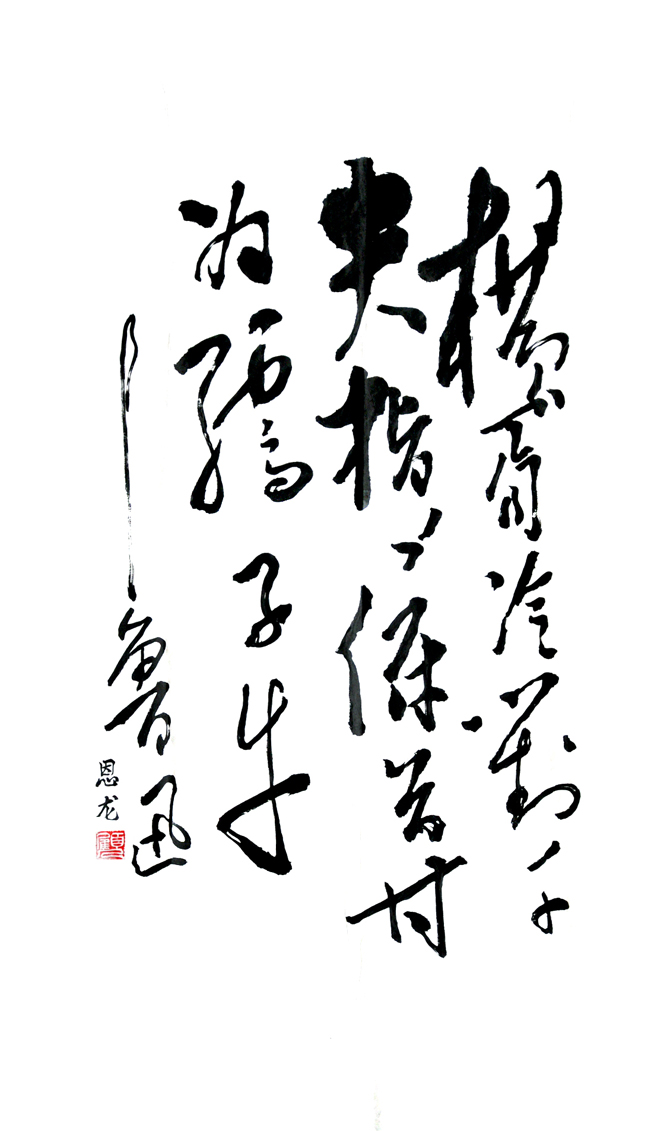 横眉冷對千
夫指俯首甘
为孺子牛
——鲁迅
恩龙